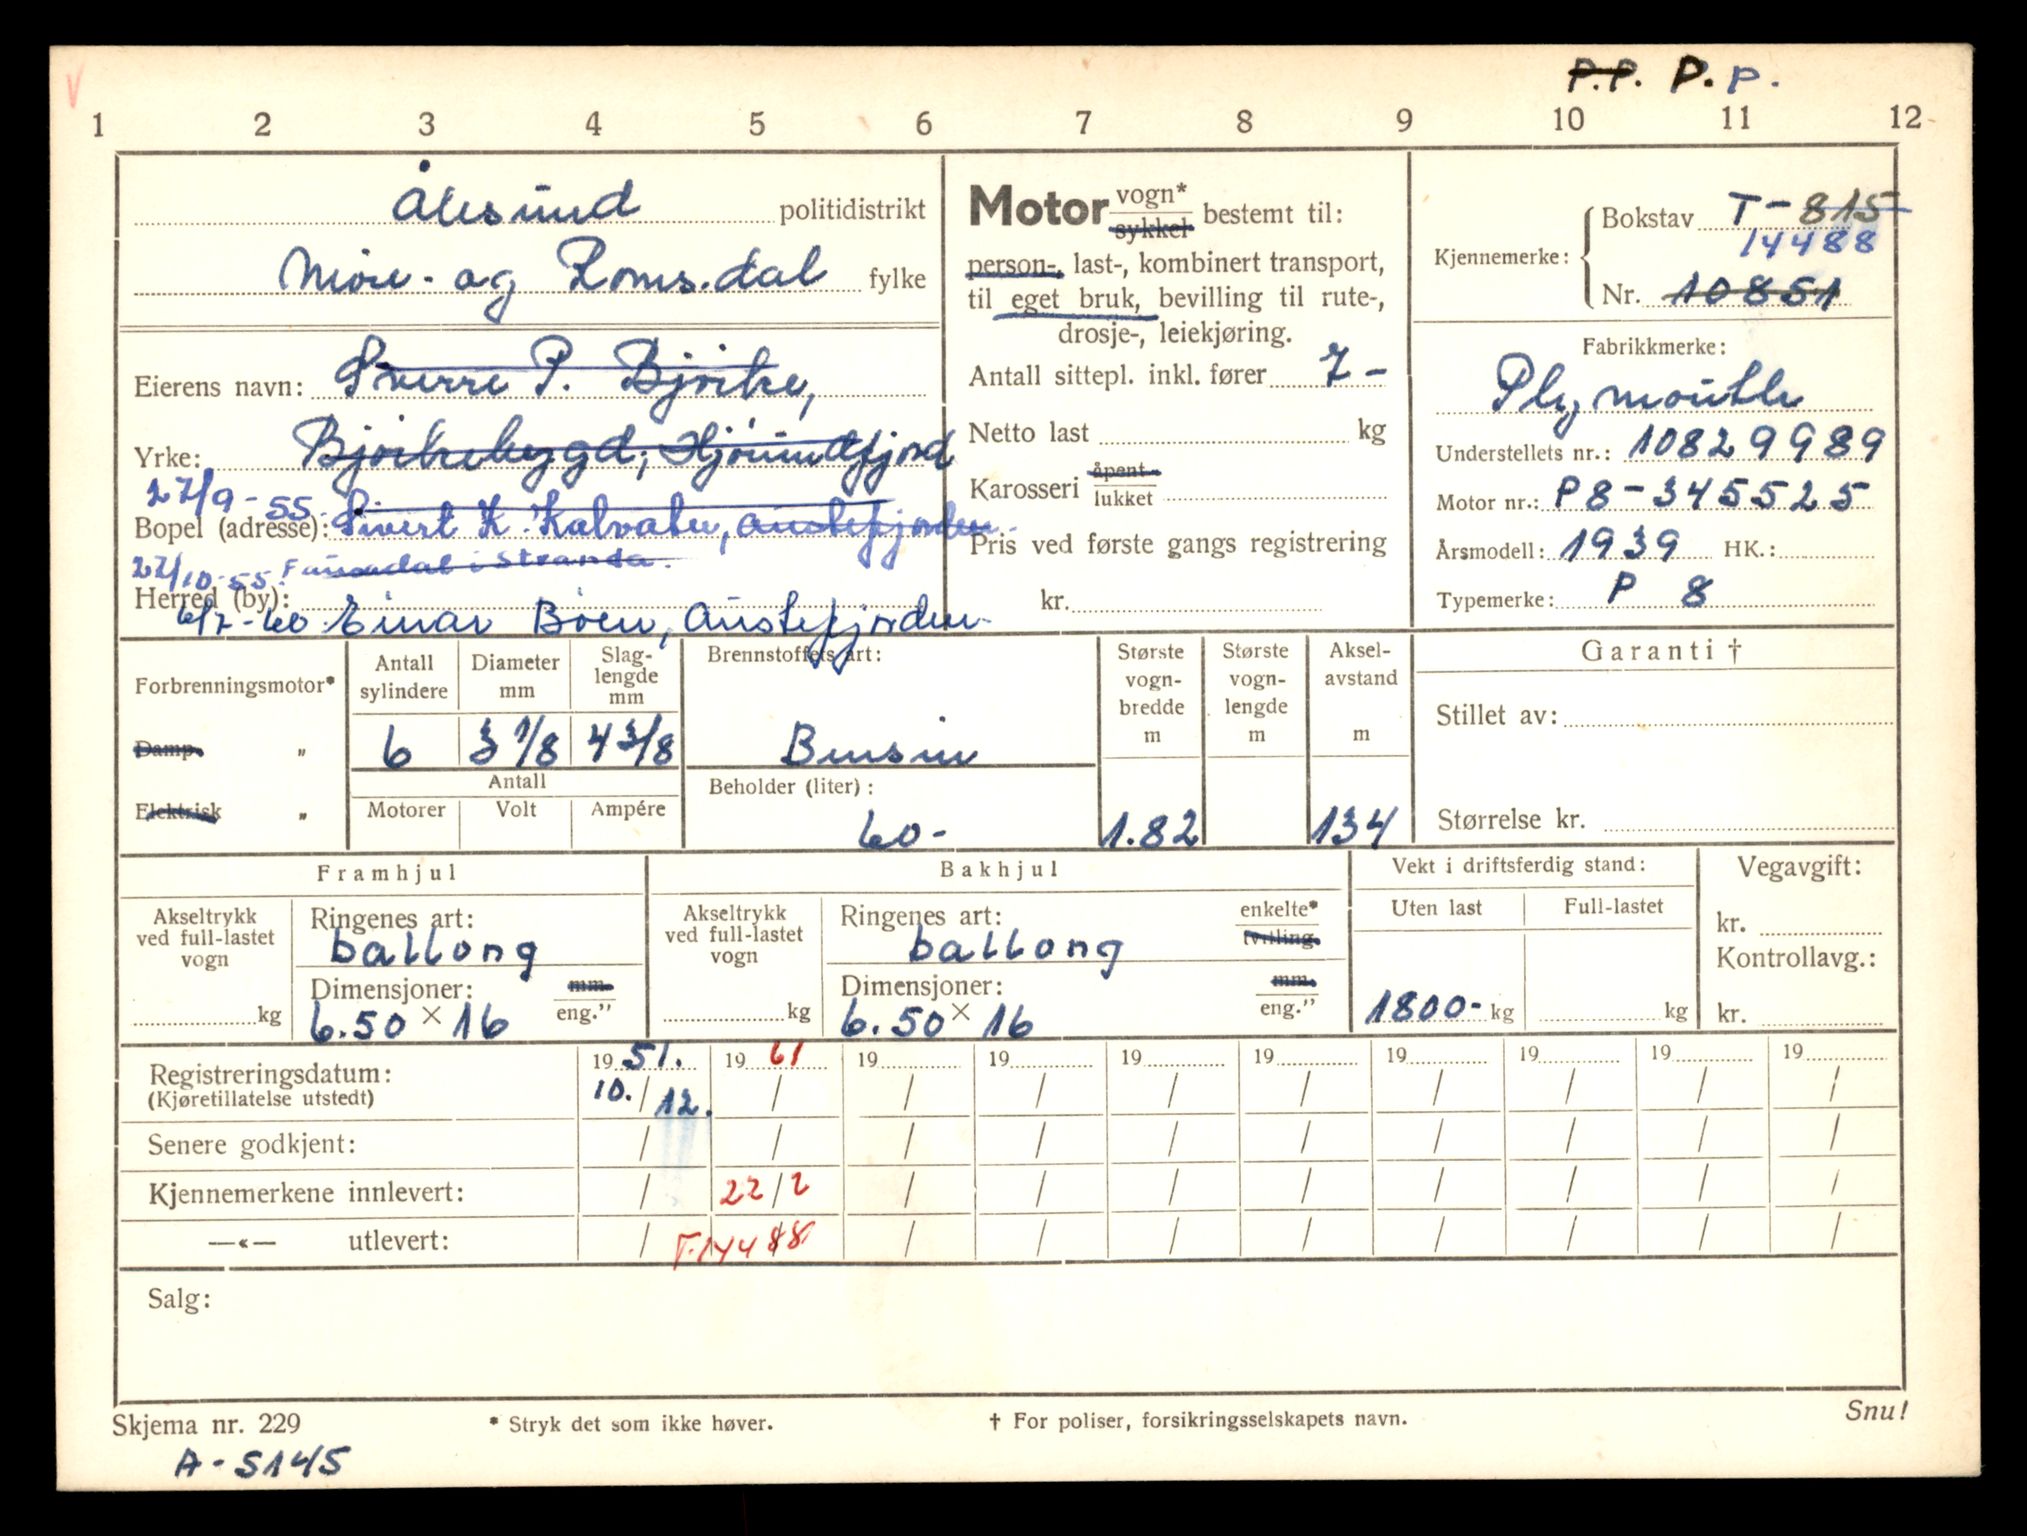 P.P. P. P.
1 2 3 4 5 6 7 8 9 10 11 12
Ålesund politidistrikt
Møre- og Romsdal fylke
Eierens navn: Sverre P. Bjørke,
Yrke: Bjørkebygd, Hjørundfjord
27/9-55.
Bopel (adresse): Sivert K. Kalvatn, Austefjorden.
27/10-55. i Stranda.
Herred (by):
6/7-60 Einar Bøen, Austefjorden
Motor vogn* sykkel bestemt til:
person-, last-, kombinert transport,
til eget bruk, bevilling til rute-,
drosje-, leiekjøring.
Antall sittepl. inkl. fører 7-
Netto last kg
Karosseri åpent lukket
Pris ved første gangs registrering
kr.
Kjennemerke:
Bokstav T-815
14488
Nr. 10851
Fabrikkmerke:
Plymouth
Understellets nr.: 10829989
Motor nr.: P8-345525
Årsmodell: 1939 HK.:
Typemerke: P 8
Forbrenningsmotor*
Damp- "
Elektrisk "
Antall sylindere
6
Diameter mm
3 1/8
Slag-lengde mm
4 3/8
Antall
Motorer Volt Ampére
Brennstoffets art:
Bensin
Beholder (liter):
60-
Største vogn-bredde m
1.82
Største vogn-lengde m
Aksel-avstand m
134
Garanti †
Stillet av:
Størrelse kr.
Framhjul
Akseltrykk ved full-lastet vogn
kg
Ringenes art:
ballong
Dimensjoner: mm. eng."
6.50 × 16
Bakhjul
Akseltrykk ved full-lastet vogn
kg
Ringenes art: enkelte* tvilling.
ballong
Dimensjoner: mm. eng."
6.50 × 16
Vekt i driftsferdig stand:
Uten last Full-lastet
1800- kg kg
Vegavgift:
kr.
Kontrollavg.:
kr.
19 51. 19 61 19 19 19 19 19 19 19 19
Registreringsdatum: 10./12. / / / / / / / / /
(Kjøretillatelse utstedt)
Senere godkjent: / / / / / / / / / /
Kjennemerkene innlevert: / 22/2 / / / / / / / /
—«— utlevert: / T.14488 / / / / / / / /
Salg:
Skjema nr. 229 * Stryk det som ikke høver. † For poliser, forsikringsselskapets navn. Snu!
A-5145